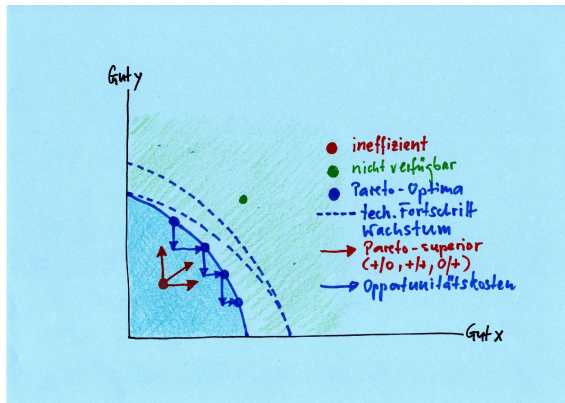 Gut y
ineffizient
nicht verfügbar
Pareto-Optima
tech. Fortschritt
Wachstum
Pareto-superior
(+/0, +/+, 0/+)
Opportunitätskosten
Gut x